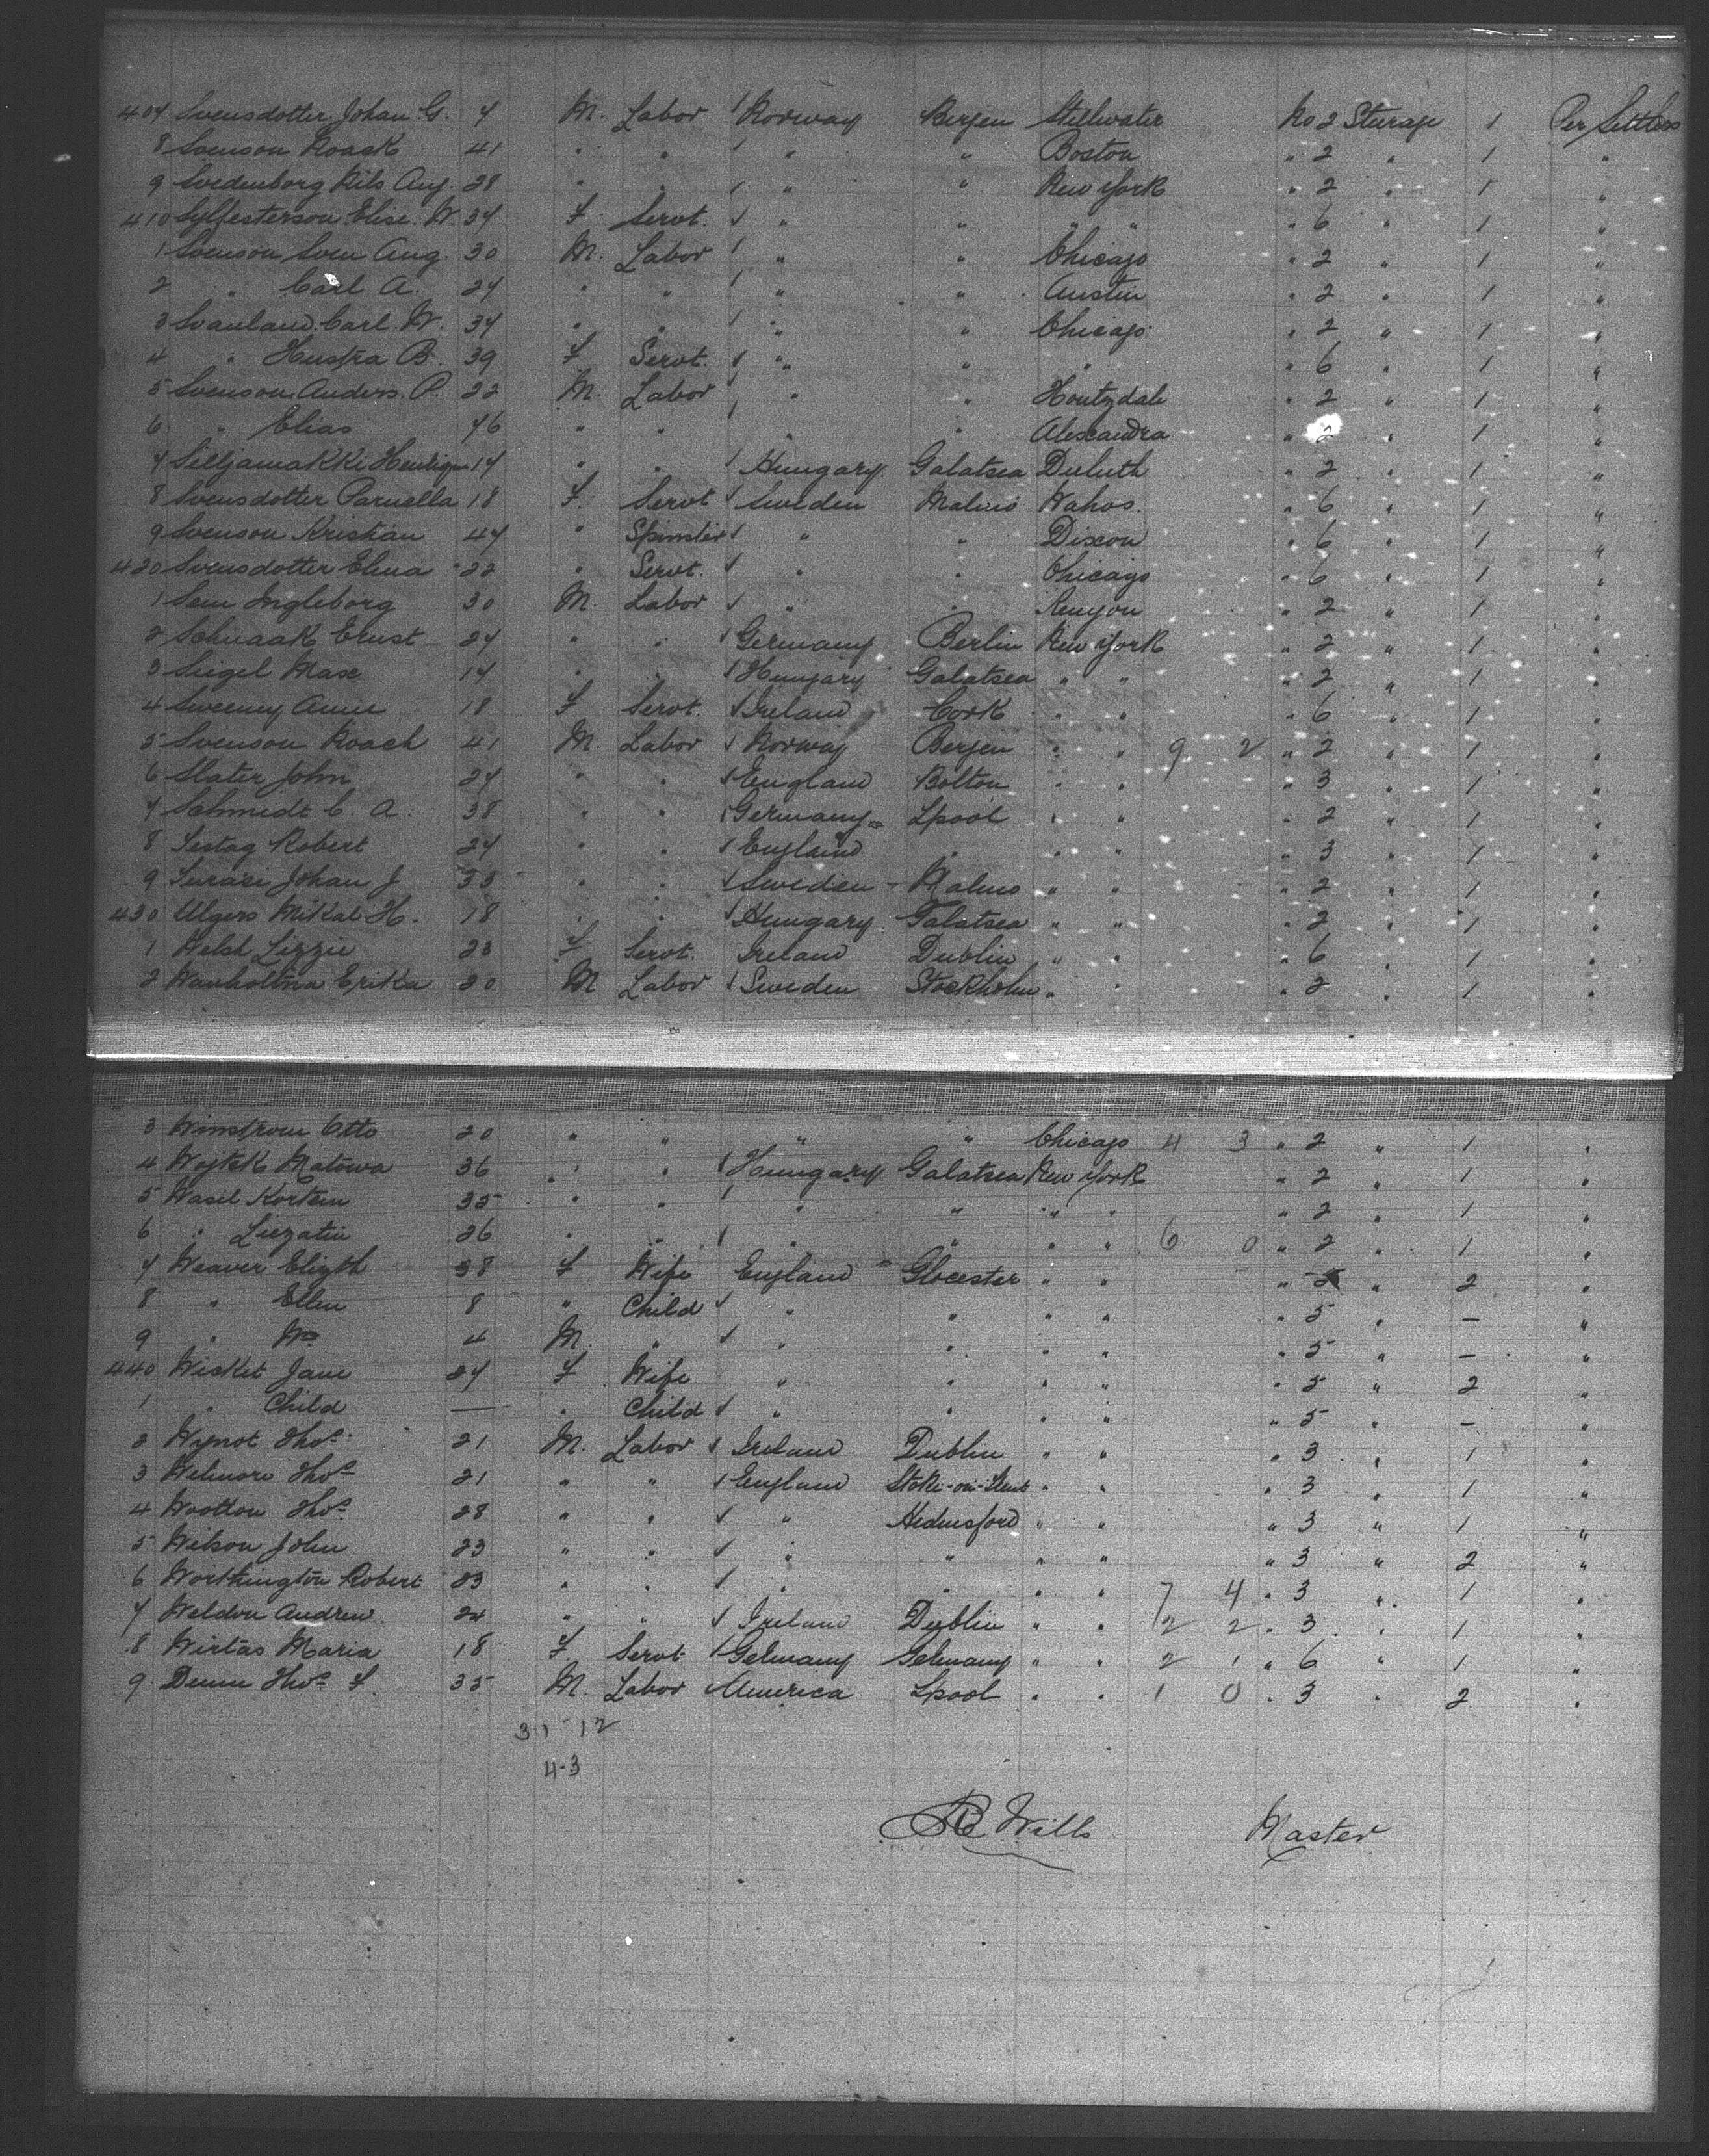 407 Svensdotter Johan G. 7 M. Labor Norway Bergen Stillwater No 2 Sturage 1 Per Settlers
8 Svenson Roack 41 " " " " Boston " 2 " 1 "
9 Svedenborg Nils Aug. 28 " " " " New York " 2 " 1 "
410 Sylfesterson Elise. W. 34 F. Servt. " " " " " 6 " 1 "
1 Svenson Sven Aug. 30 M. Labor " " Chicago " 2 " 1 "
2 " Carl A. 24 " " " " Austin " 2 " 1 "
3 Svanland Carl. W. 34 " " " " Chicago " 2 " 1 "
4 " B. 39 F Servt. " " " " 6 " 1 "
5 Svenson Anders. P. 22 M. Labor " " Houtzdale " 2 " 1 "
6 " Elias 46 " " " " Alexandra " 2 " 1 "
7 14 " " Hungary. Galatsea Duluth " 2 " 1 "
8 Svensdotter Parnella 18 F. Servt Sweden Malmo Wahos. " 6 " 1 "
9 Svenson Kristian 47 " Spinster " " Dixon " 6 " 1 "
420 Svensdotter Elina 22 " Servt. " " Chicago " 6 " 1 "
1 Sem Ingleborg 30 M. Labor " " Kenyon " 2 " 1 "
2 Schnaak Ernst 24 " " Germany Berlin New York " 2 " 1 "
3 Seigel Max 14 " " Hungary Galatsea " " " 2 " 1 "
4 Sweeney Annie 18 F Servt. Ireland Cork " " " 6 " 1 "
5 Svenson Roach 41 M. Labor Norway Bergen " " 9 2 " 2 " 1 "
6 Slater John 24 " " England Bolton " " " 3 " 1 "
7 Schmidt C. A. 38 " " Germany Lpool " " " 2 " 1 "
8 Robert 24 " " England " " " " 3 " 1 "
9 Johan J 35 " " Sweden Malmo " " " 2 " 1 "
430 Ulgers Mikal H. 18 " " Hungary. Galatsea " " " 2 " 1 "
1 Welsh Lizzie 23 F Servt. Ireland Dublin " " " 6 " 1 "
2 Wanholtina Erika 20 M Labor Sweden Stockholm " " " 2 " 1 "
3 Winstrom Otto 20 " " " " Chicago 4 3 " 2 " 1 "
4 Wojtek Matowa 36 " " Hungary Galatsea New York " 2 " 1 "
5 Wasil Kortem 35 " " " " " " " 2 " 1 "
6 " Liezatin 26 " " " " " " 6 0 " 2 " 1 "
7 Weaver Elizth 38 F Wife England Glocester " " " 5 " 2 "
8 " Ellen 8 " Child " " " " " 5 " – "
9 " Wm 4 M. " " " " " " 5 " – "
440 Wisket Jane 27 F Wife " " " " " 5 " 2 "
1 " Child — " Child " " " " " 5 " – "
2 Wynot Thos. 21 M. Labor Ireland Dublin " " " 3 " 1 "
3 Welmore Thos 21 " " England Stoke-on-Trent " " " 3 " 1 "
4 Wootton Thos. 28 " " " Hednesford " " " 3 " 1 "
5 Wilson John 23 " " " " " " " 3 " 2 "
6 Worthington Robert 23 " " " " " " 7 4 " 3 " 1 "
7 Weldon Andrew 24 " " Ireland Dublin " " 2 2 " 3 " 1 "
8 Wirtas Maria 18 F. Servt Germany Germany " " 2 1 " 6 " 1 "
9 Dunn Thos. F. 35 M. Labor America Lpool " " 1 0 " 3 " 2 "
31 12
4-3
Wills Master